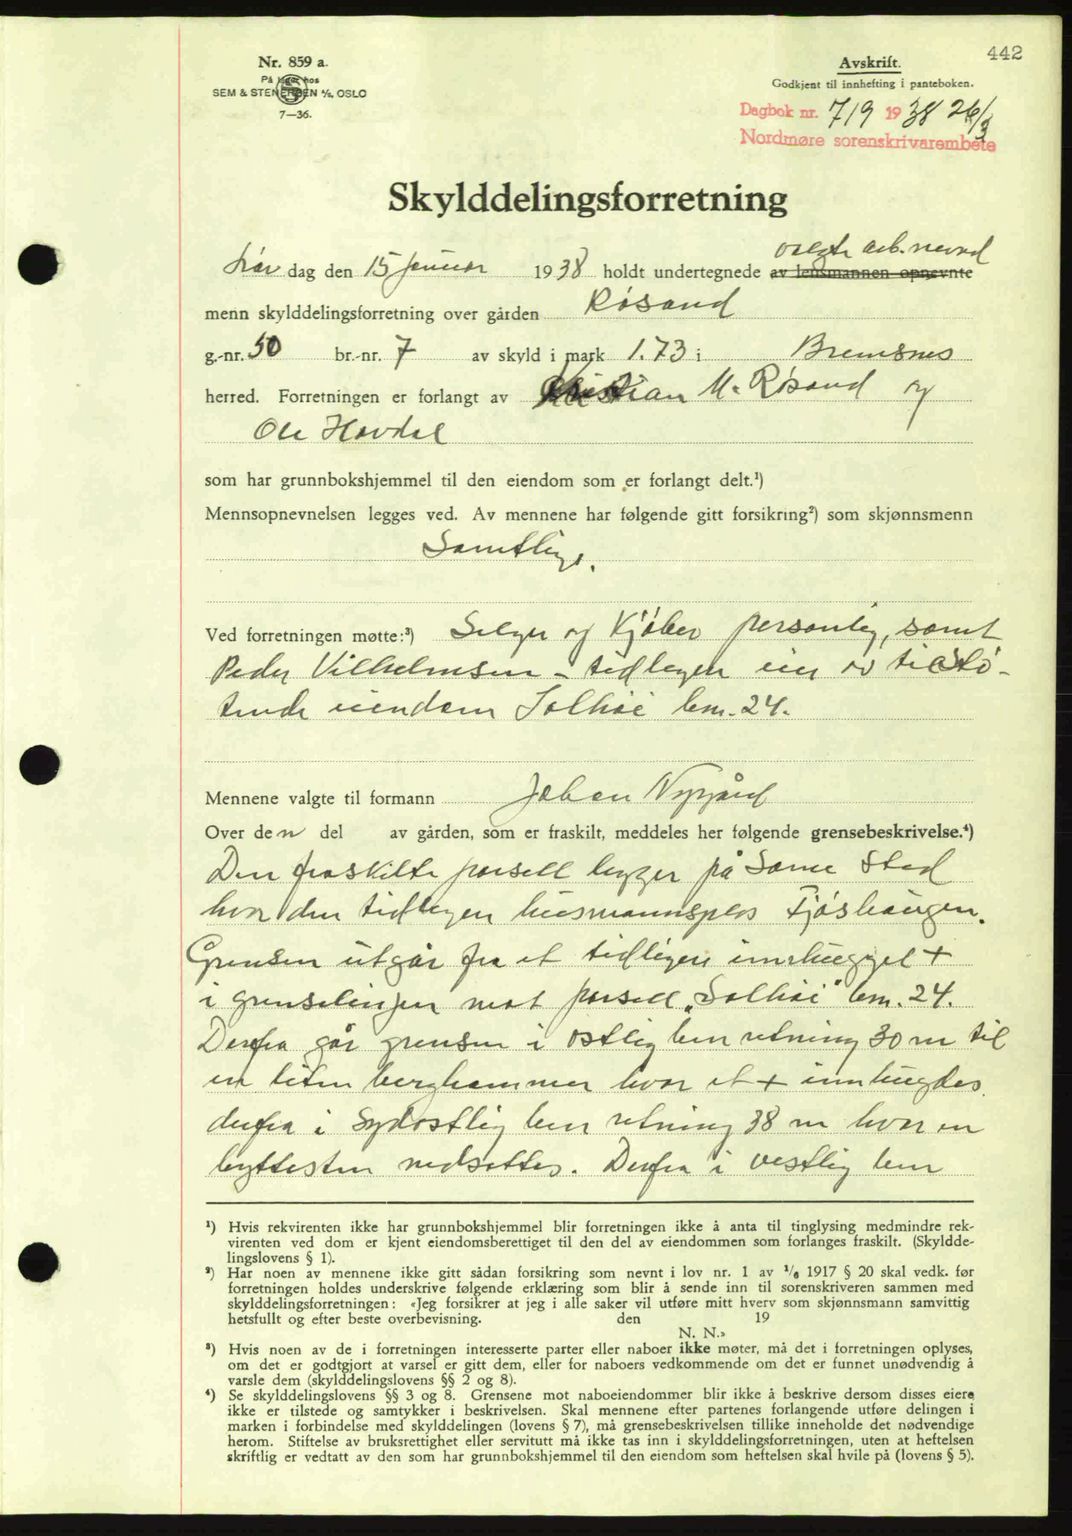 442
Nr. 859 a.
På lager hos
SEM & STENERSEN A/S, OSLO
7—36.
Avskrift.
Godkjent til innhefting i panteboken.
Dagbok nr. 719 1938 26/3
Nordmøre sorenskrivarembete
Skylddelingsforretning
valgte arb.nevnd
Lør dag den 15 januar 1938 holdt undertegnede av lensmannen opnevnte
menn skylddelingsforretning over gården Røsand
g.-nr. 50 br.-nr. 7 av skyld i mark 1.73 i Bremsnes
herred. Forretningen er forlangt av Kristian M. Røsand og
Ole Havdal
som har grunnbokshjemmel til den eiendom som er forlangt delt.¹)
Mennsopnevnelsen legges ved. Av mennene har følgende gitt forsikring²) som skjønnsmenn
Samtlige.
Ved forretningen møtte:³) Selger og Kjøber personlig, samt
Peder Vilhelmsen - tidligere eier av tilstø-
tende eiendom Solhøi brn. 24.
Mennene valgte til formann Johan Nygård
Over den del av gården, som er fraskilt, meddeles her følgende grensebeskrivelse.⁴)
Den fraskilte parsell ligger på same sted
hvor den tidligere husmannsplass Fjøshaugen.
Grensen utgår fra et tidligere innhugget +
i grenselinjen mot parsell „Solhøi" brn. 24.
Derfra går grensen i østlig lem retning 30 m til
en liten berghammer hvor et + innhugdes
derfra i sydøstlig lem retning 38 m hvor en
byttesten nedsattes. Derfra i vestlig lem
¹) Hvis rekvirenten ikke har grunnbokshjemmel blir forretningen ikke å anta til tinglysing medmindre rek-
virenten ved dom er kjent eiendomsberettiget til den del av eiendommen som forlanges fraskilt. (Skyldde-
lingslovens § 1).
²) Har noen av mennene ikke gitt sådan forsikring som nevnt i lov nr. 1 av ¹/₆ 1917 § 20 skal vedk. før
forretningen holdes underskrive følgende erklæring som blir å sende inn til sorenskriveren sammen med
skylddelingsforretningen: «Jeg forsikrer at jeg i alle saker vil utføre mitt hverv som skjønnsmann samvittig
hetsfullt og efter beste overbevisning. den 19
N. N.»
³) Hvis noen av de i forretningen interesserte parter eller naboer ikke møter, må det i forretningen oplyses,
om det er godtgjort at varsel er gitt dem, eller for naboers vedkommende om det er funnet unødvendig å
varsle dem (skylddelingslovens §§ 2 og 8).
⁴) Se skylddelingslovens §§ 3 og 8. Grensene mot naboeiendommer blir ikke å beskrive dersom disses eiere
ikke er tilstede og samtykker i beskrivelsen. Skal mennene efter partenes forlangende utføre delingen i
marken i forbindelse med skylddelingen (lovens § 7), må grensebeskrivelsen tillike inneholde det nødvendige
herom. Stiftelse av bruksrettighet eller servitutt må ikke tas inn i skylddelingsforretningen, uten at heftelsen
skriftlig er vedtatt av den som har grunnbokshjemmel til den eiendom som heftelsen skal hvile på (lovens § 5).